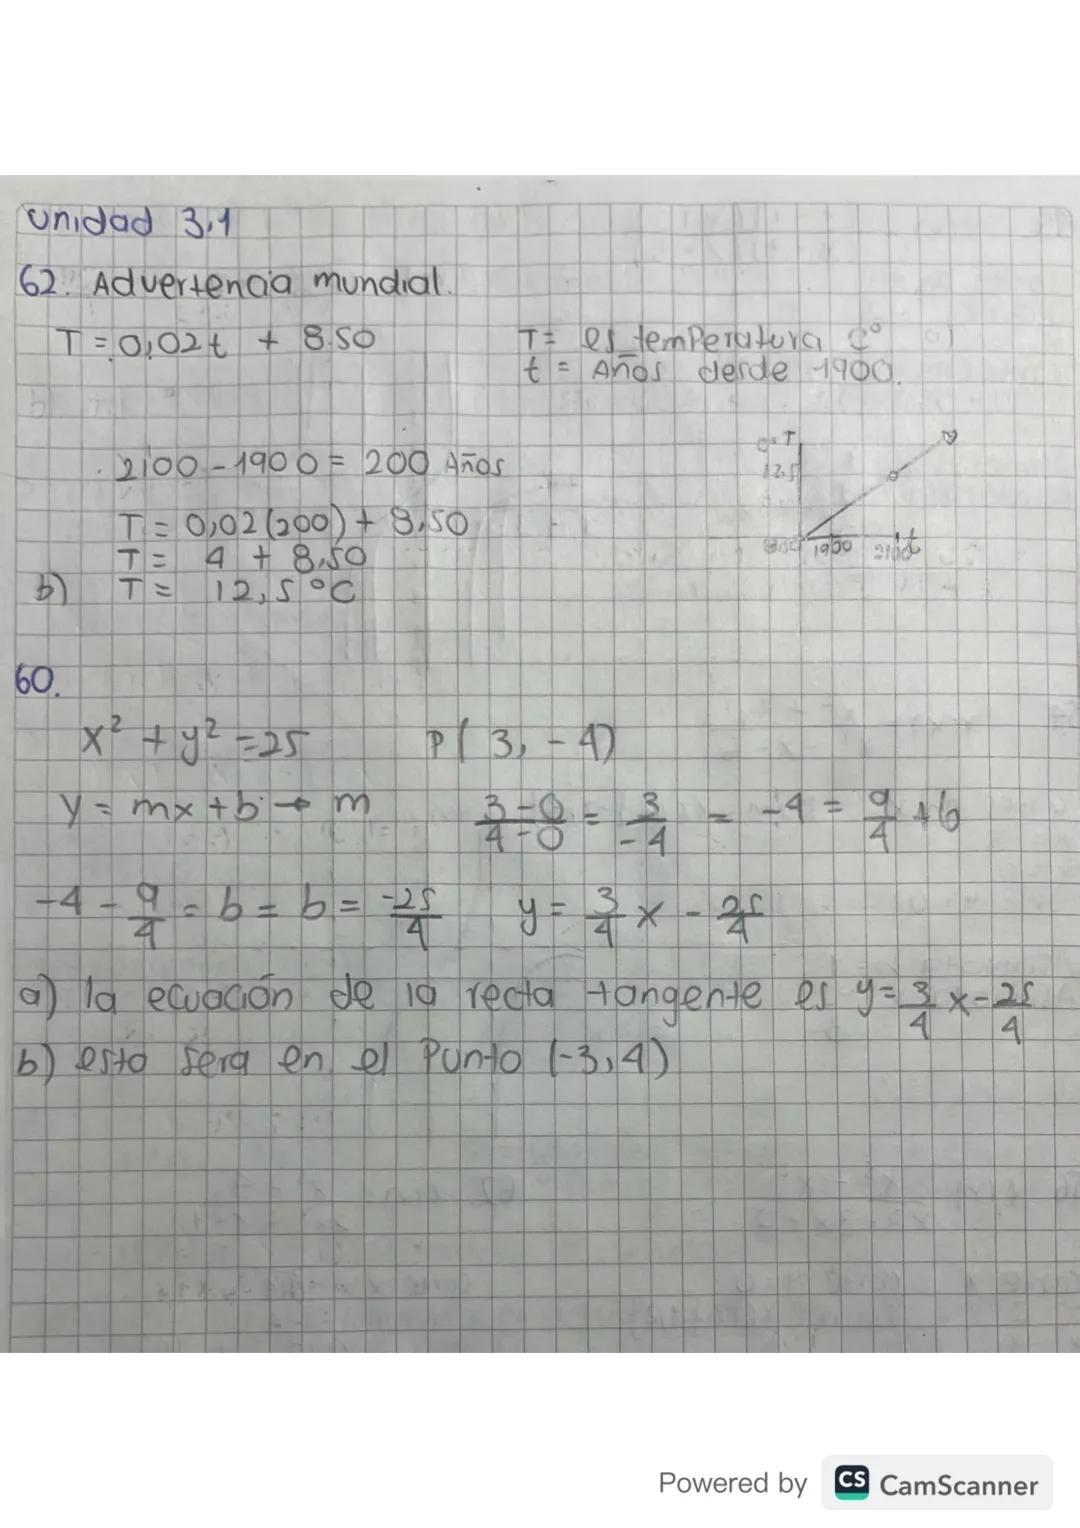 Unidad 3.1
62. Advertencia mundial.
T = 0,02t + 8.50
T = es temperatura C°
t = Años desde 1900.
2100 - 1900 = 200 Años
T = 0,02(200) + 8,50
T = 4 + 8,50
b) T = 12,5 °C
T
12.5
8.50 1900 2100 t
60.
x² + y² = 25 P(3, -4)
y = mx + b → m 3-0/4-0 = 3/-4 = -4 = 9/4 + b
-4 - 9/4 = b = b = -25/4 y = 3/4 x - 25/4
a) la ecuación de la recta tangente es y = 3/4 x - 25/4
b) esto sera en el punto (-3,4)
Powered by CS CamScanner